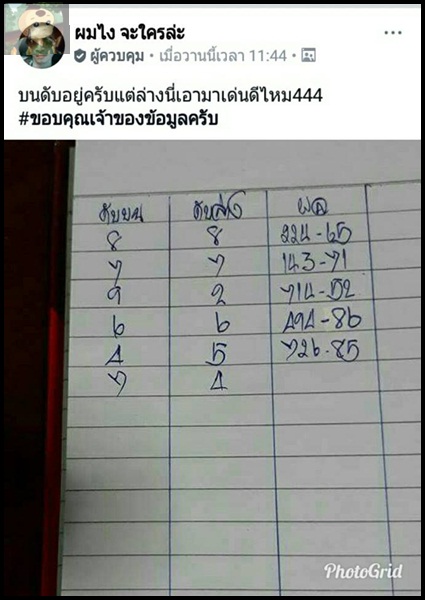 ผมไง จะใครล่ะ
ผู้ควบคุม • เมื่อวานนี้เวลา 11:44 •
บนดับอยู่ครับแต่ล่างนี่เอามาเด่นดีไหม444
#ขอบคุณเจ้าของข้อมูลครับ
ดับบน ดับล่าง ผล
8 8 224-65
7 7 143-71
9 2 714-52
6 6 494-86
4 5 726-85
7 4
PhotoGrid